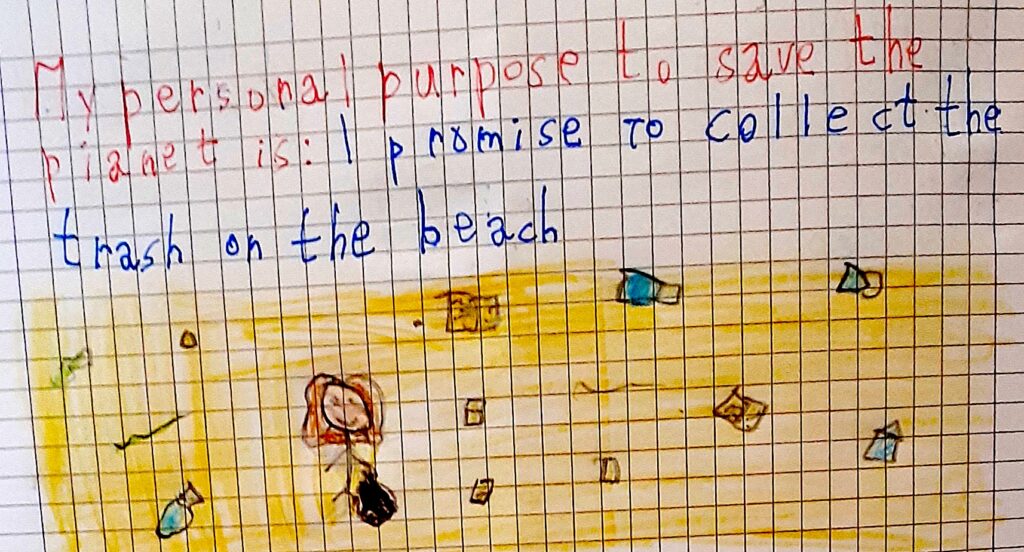 My personal purpose to save the
planet is: I promise to collect the
trash on the beach